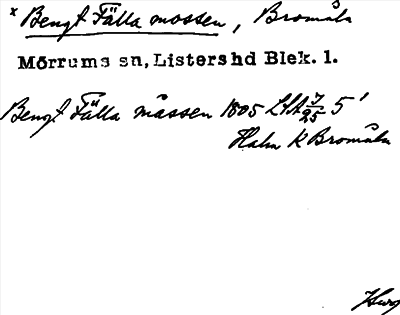 x Bengt Fälla mossen, Bromåla
Mörrums sn, Listers hd Blek. l.
Bengt Fälla måssen 1805 LSA 7/25 5'
Halm K Bromåla